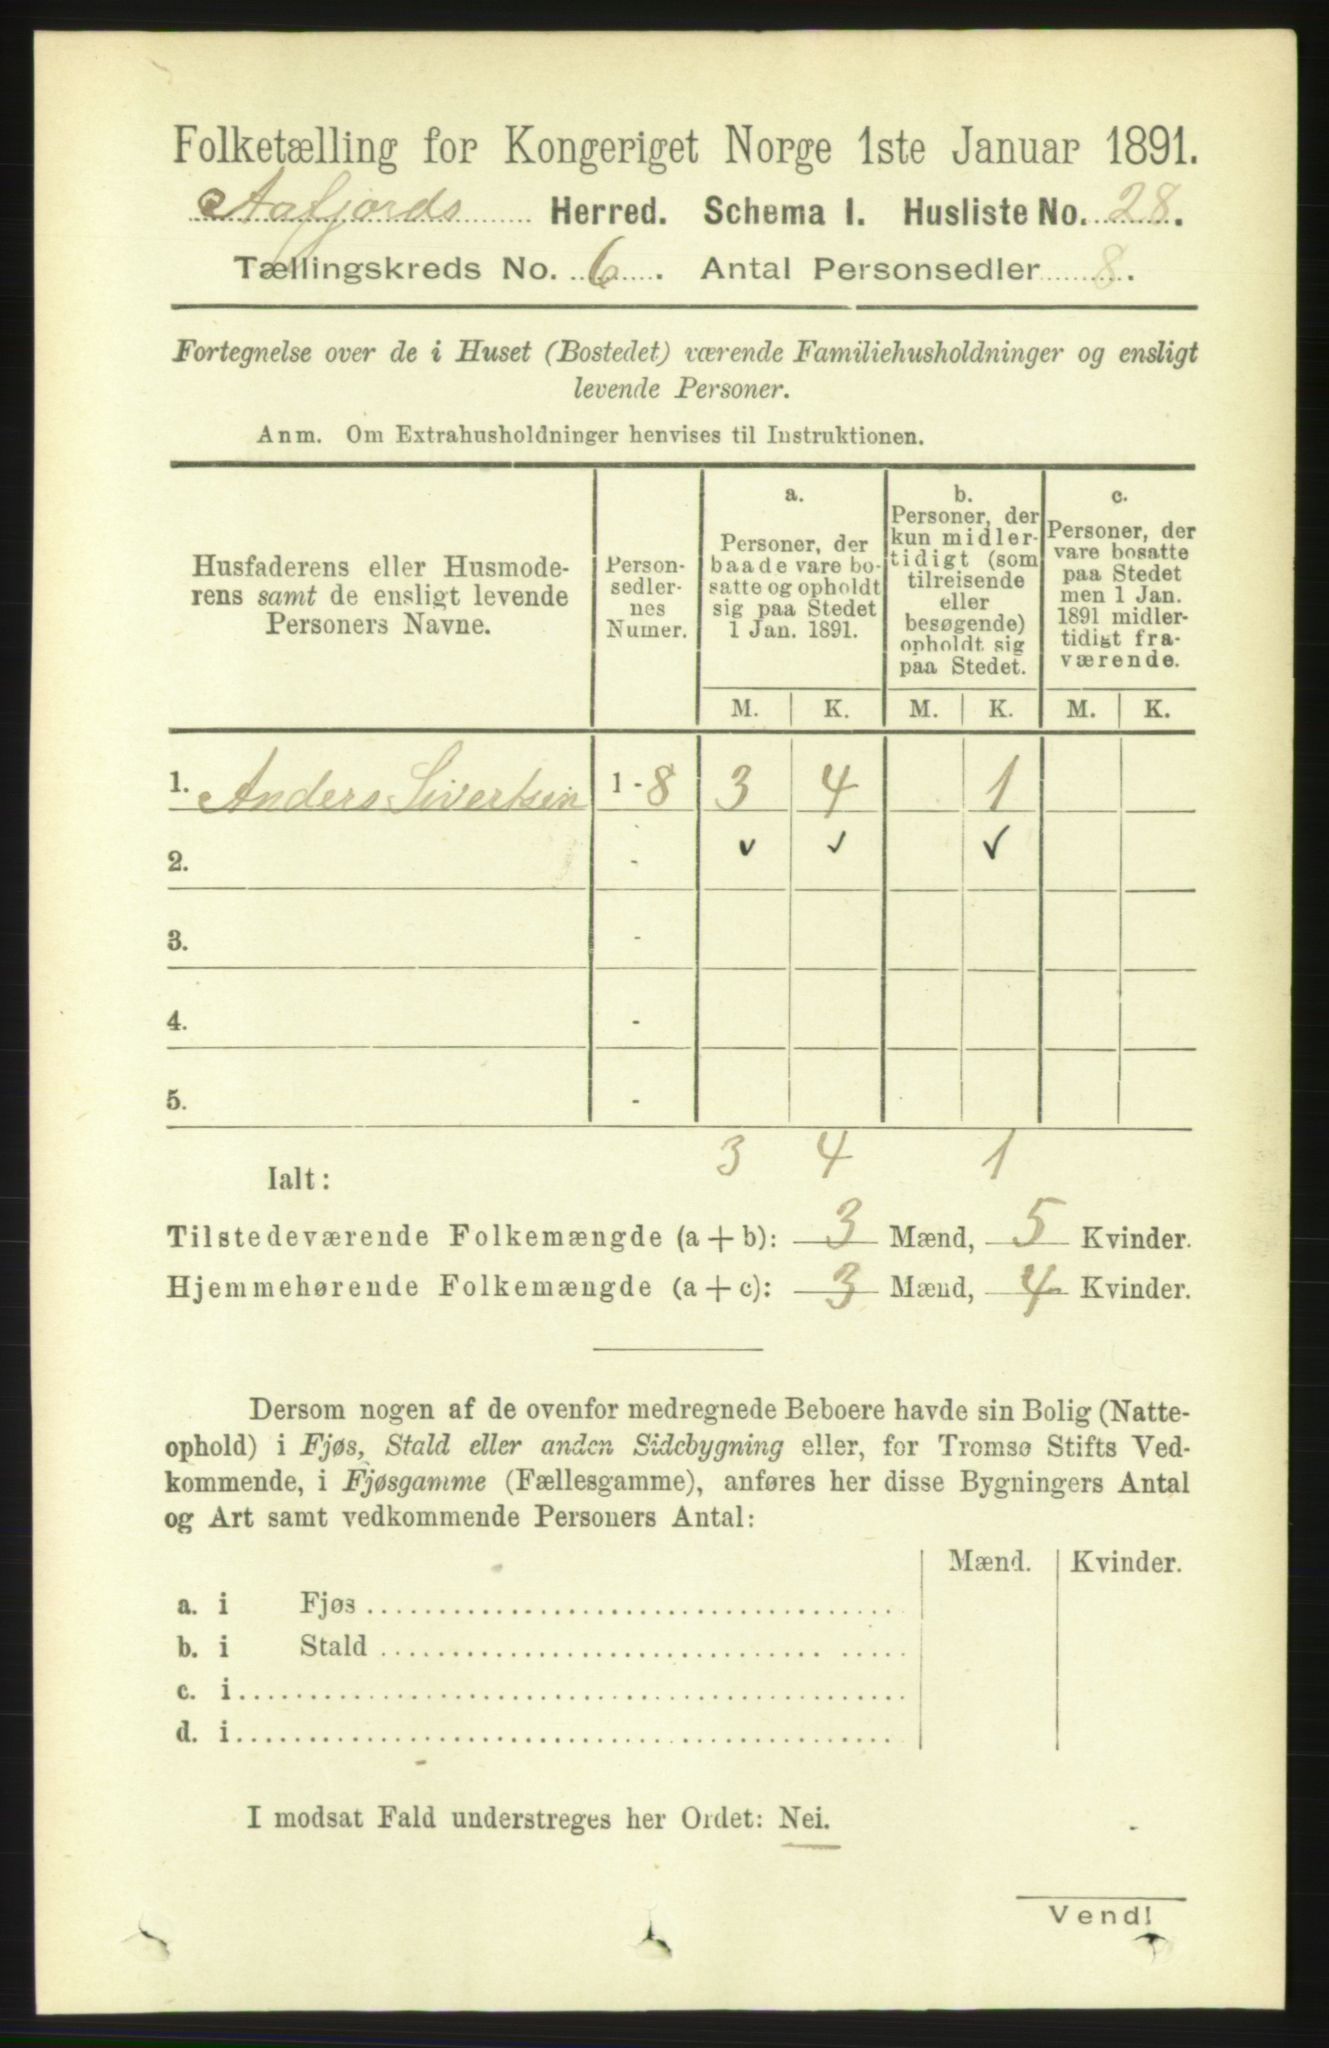 Folketælling for Kongeriget Norge 1ste Januar 1891.
Aafjords Herred. Schema I. Husliste No. 28.
Tællingskreds No. 6. Antal Personsedler 8.
Fortegnelse over de i Huset (Bostedet) værende Familiehusholdninger og ensligt
levende Personer.
Anm. Om Extrahusholdninger henvises til Instruktionen.
Husfaderens eller Husmode-
rens samt de ensligt levende
Personers Navne.
Person-
sedler-
nes
Numer.
a.
Personer, der
baade vare bo-
satte og opholdt
sig paa Stedet
1 Jan. 1891.
b.
Personer, der
kun midler-
tidigt (som
tilreisende
eller
besøgende)
opholdt sig
paa Stedet.
c.
Personer, der
vare bosatte
paa Stedet
men 1 Jan.
1891 midler-
tidigt fra-
værende.
M. K. M. K. M. K.
1. Anders Sivertsen 1 - 8 3 4 1
2. - ✓ ✓ ✓
3. -
4. -
5. -
3 4 1
Ialt:
Tilstedeværende Folkemængde (a + b): 3 Mænd, 5 Kvinder.
Hjemmehørende Folkemængde (a + c): 3 Mænd, 4 Kvinder.
Dersom nogen af de ovenfor medregnede Beboere havde sin Bolig (Natte-
ophold) i Fjøs, Stald eller anden Sidebygning eller, for Tromsø Stifts Ved-
kommende, i Fjøsgamme (Fællesgamme), anføres her disse Bygningers Antal
og Art samt vedkommende Personers Antal:
Mænd. Kvinder.
a. i Fjøs
b. i Stald
c. i
d. i
I modsat Fald understreges her Ordet: Nei.
Vend!